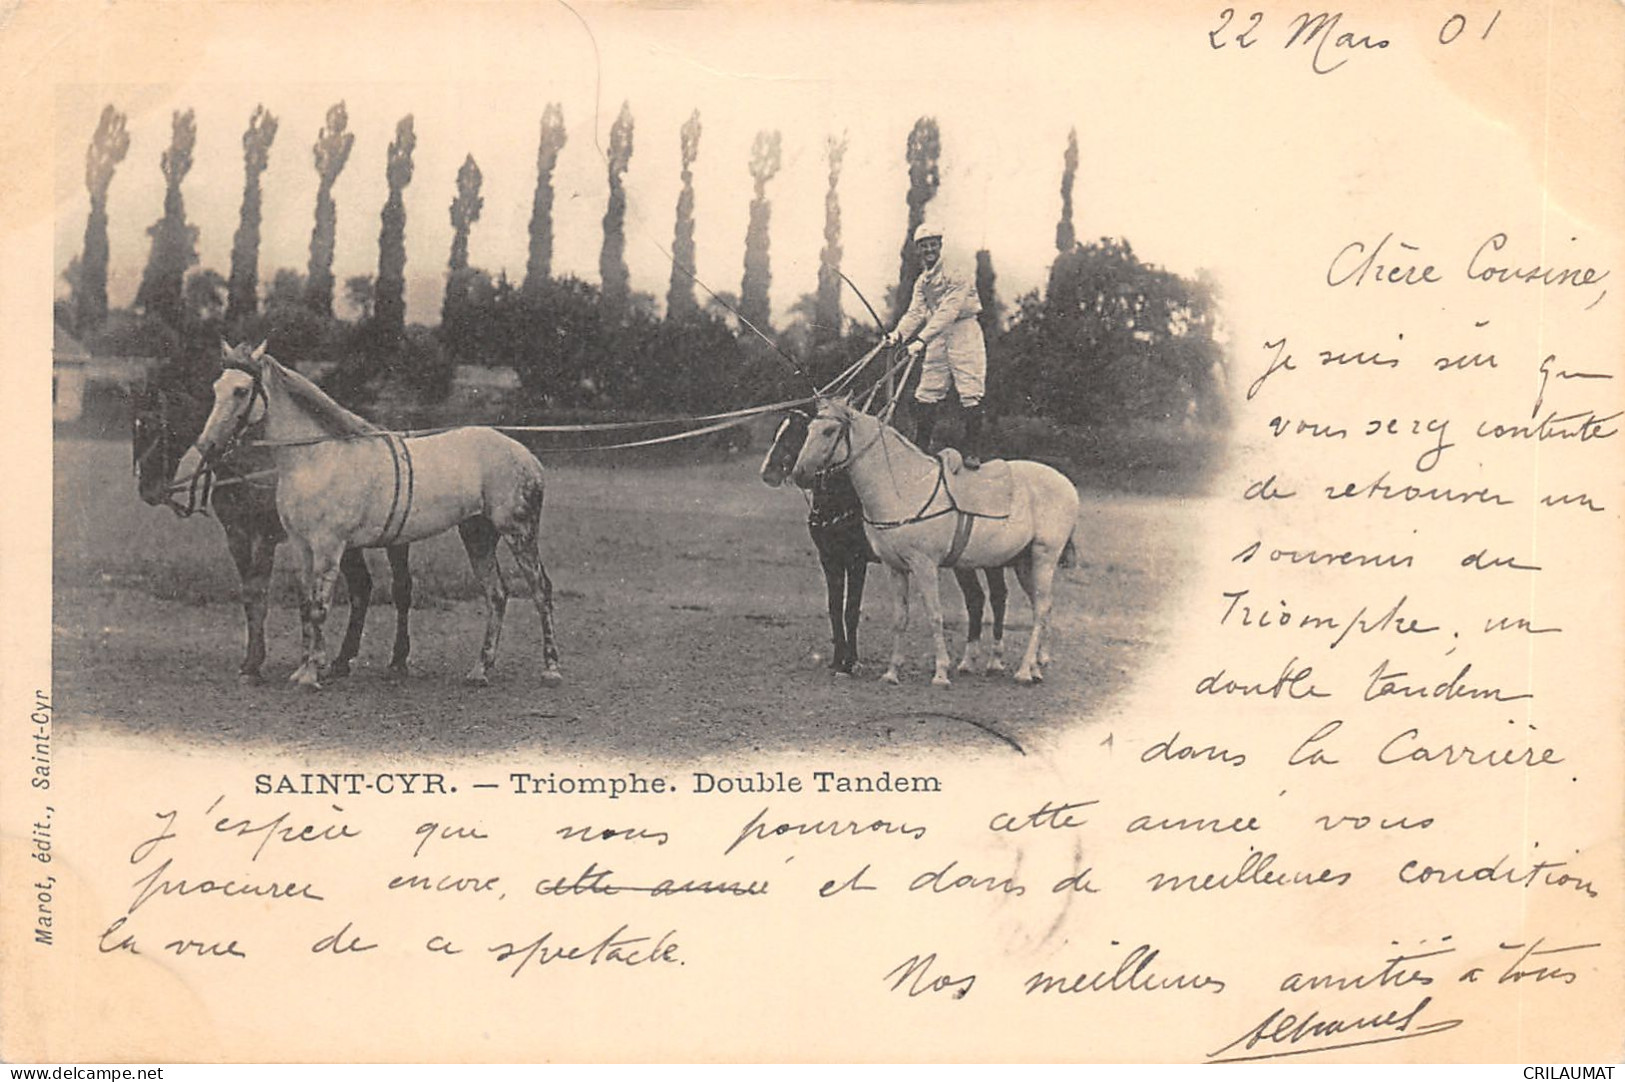 22 Mars 01
Chère Cousine,
Je suis sûr que
vous serez contente
de retrouver un
souvenir du
Triomphe, un
double tandem
dans la Carrière.
SAINT-CYR. — Triomphe. Double Tandem
J'espère que nous pourrons cette année vous
procurer encore, cette année et dans de meilleures conditions
la vue de ce spectacle.
Nos meilleures amitiés à tous
Marot, édit., Saint-Cyr
delcampe.net
CRILAUMAT